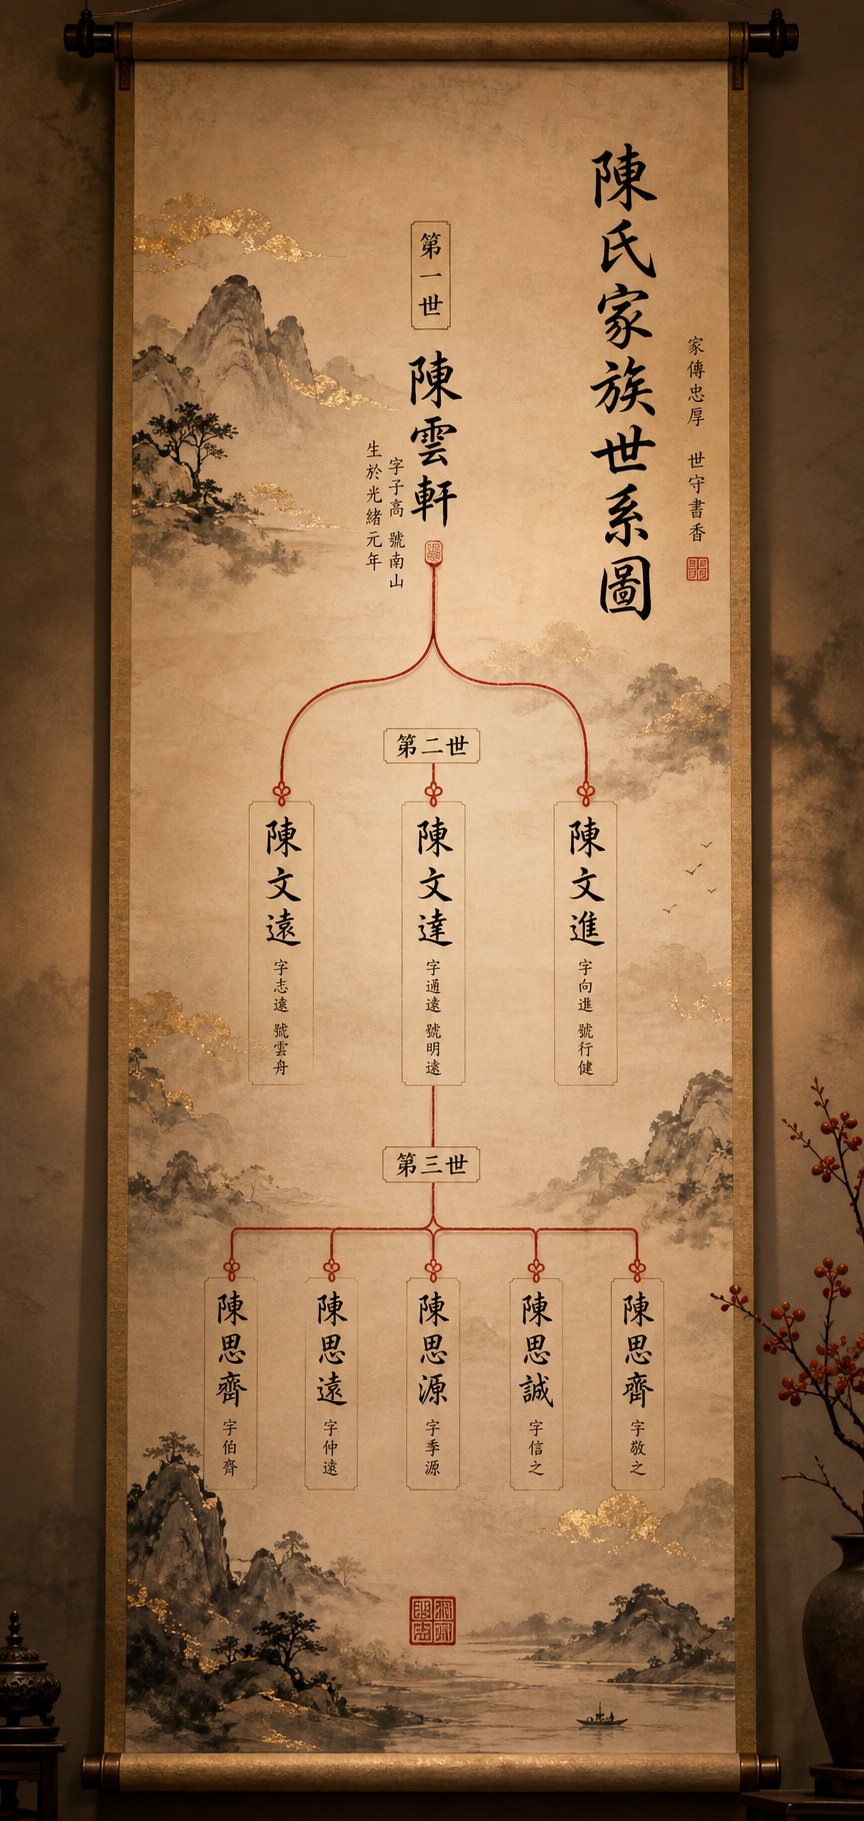 陳氏家族世系圖
家傳忠厚 世守書香
第一世
陳雲軒
字子高 號南山
生於光緒元年
第二世
陳文遠
字志遠 號雲舟
陳文達
字通遠 號明遠
陳文進
字向進 號行健
第三世
陳思齊
字伯齊
陳思遠
字仲遠
陳思源
字季源
陳思誠
字信之
陳思齊
字敬之